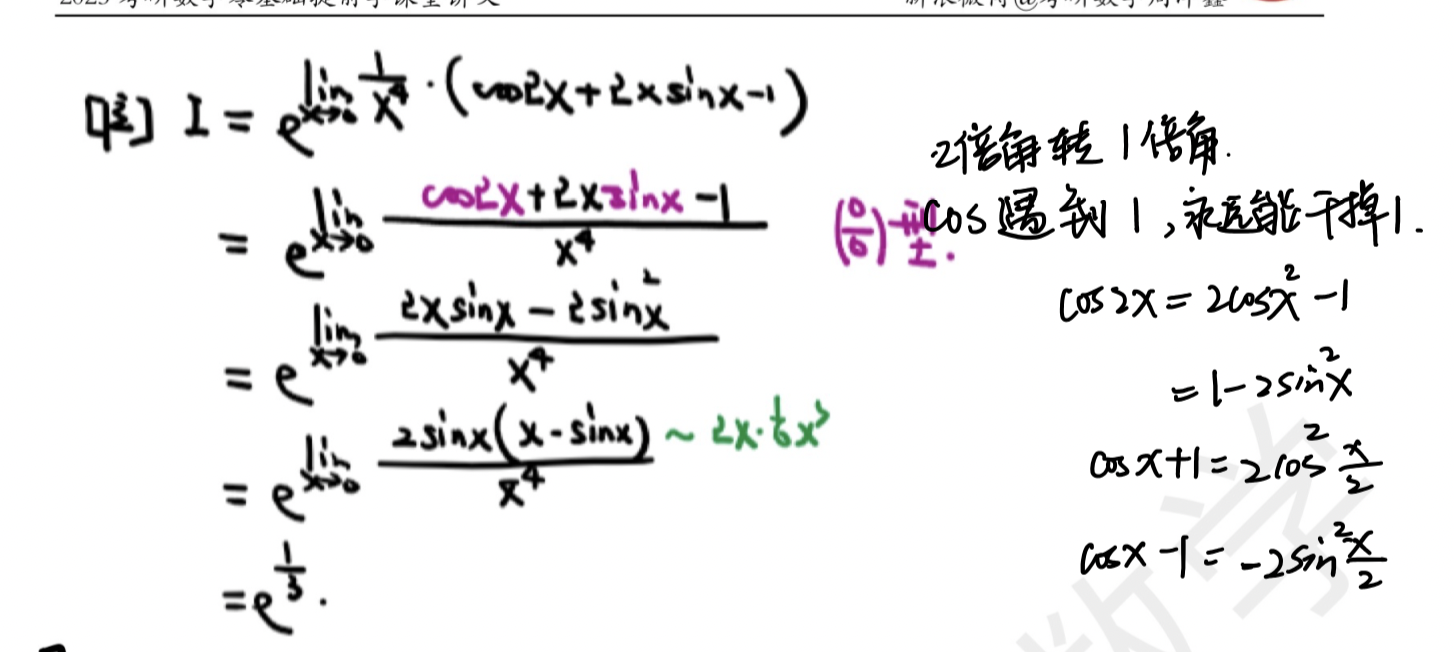 [解] I = e^{lim_{x→0} 1/x⁴ · (cos2x+2xsinx-1)}
= e^{lim_{x→0} (cos2x+2xsinx-1)/x⁴} (0/0)型.
= e^{lim_{x→0} (2xsinx-2sin²x)/x⁴}
= e^{lim_{x→0} 2sinx(x-sinx)/x⁴} ~ 2x·1/6x³
= e^{1/3}.
2倍角转1倍角.
cos遇到1,永远能干掉1.
cos2x=2cos²x-1
=1-2sin²x
cosx+1=2cos²x/2
cosx-1=-2sin²x/2
数学